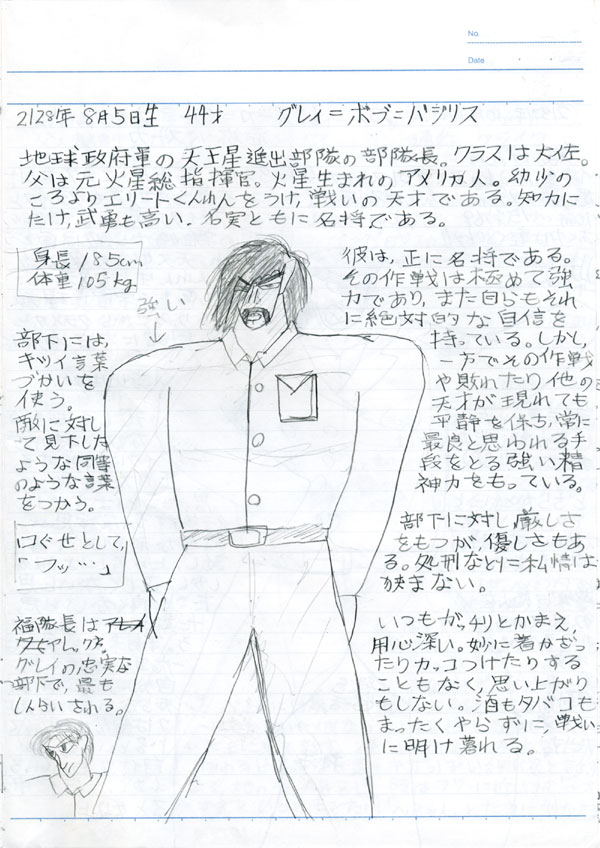 No.
Date
2128年 8月5日生 44才 グレイ=ボブ=バジリス
地球政府軍の天王星進出部隊の部隊長。クラスは大佐。
父は元火星総指揮官。火星生まれのアメリカ人。幼少の
ころよりエリートくんれんをうけ、戦いの天才である。知力に
たけ、武勇も高い。名実ともに名将である。
身長 185cm
体重 105kg
強い
彼は、正に名将である。
その作戦は極めて強
力であり、また自らもそれ
に絶対的な自信を
持っている。しかし、
一方でその作戦
や敗れたり他の
天才が現れても
平静を保ち、常に
最良と思われる手
段をとる強い精
神力をもっている。
部下には、
キツイ言葉
づかいを
使う。
敵に対し
て見下した
ような同等
のような言葉
をつかう。
口ぐせとして、
「フッ…」
部下に対し厳しさ
をもつが、優しさもあ
る。処刑などに私情は
狭まない。
福隊長は
アレックス。
グレイの忠実な
部下で、最も
しんらいされる。
いつもがっチリとかまえ、
用心深い。妙に着かざっ
たりカッコつけたりする
こともなく、思い上がり
もしない。酒もタバコも
まったくやらずに、戦い
に明け暮れる。